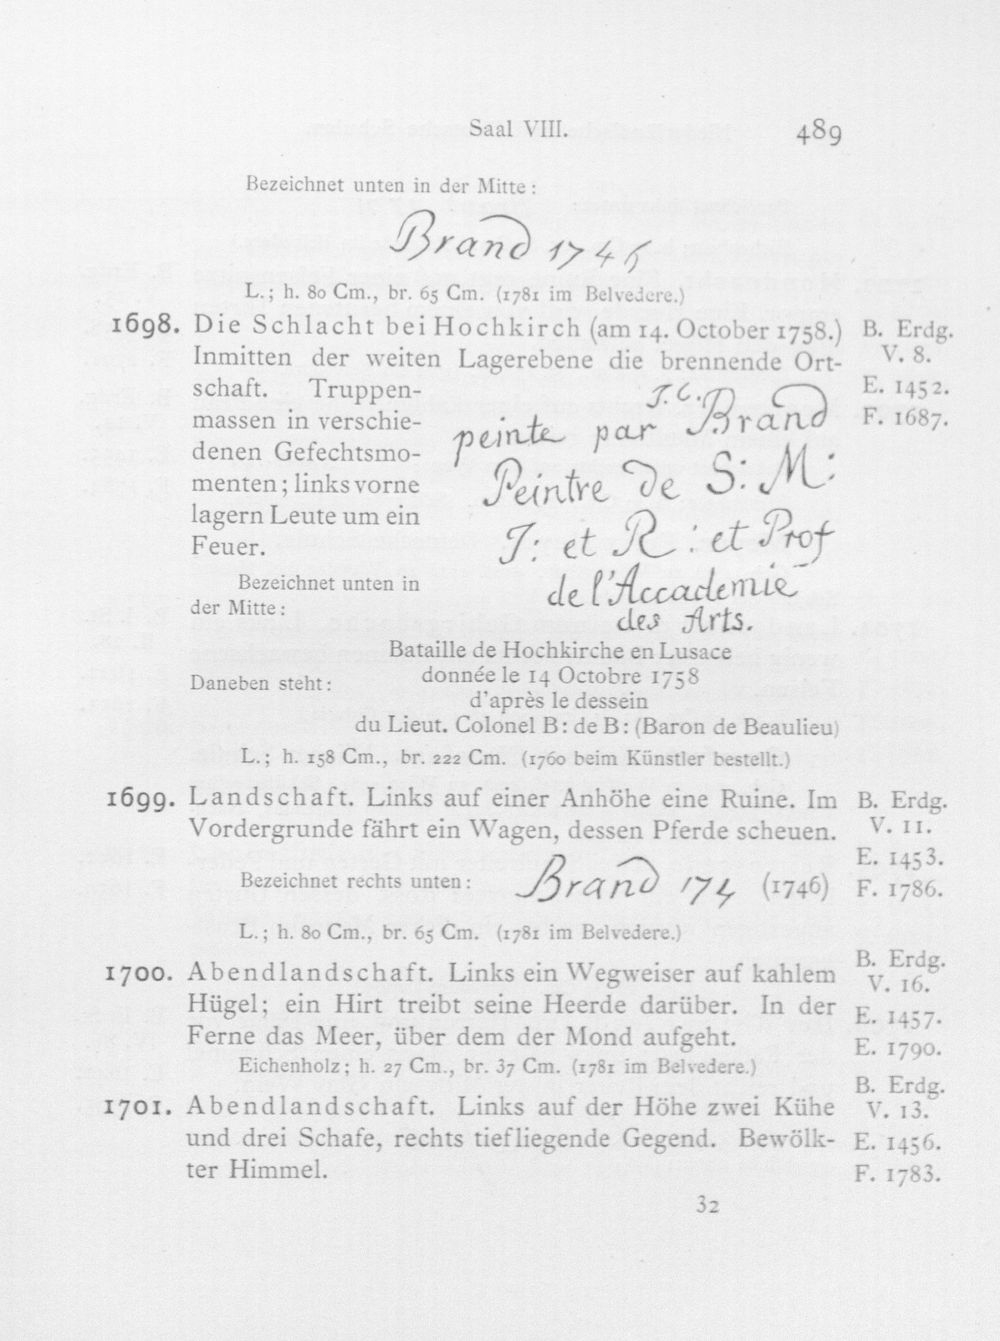 Saal VIII. 489
Bezeichnet unten in der Mitte:
Brand 1745
L.; h. 80 Cm., br. 65 Cm. (1781 im Belvedere.)
1698. Die Schlacht bei Hochkirch (am 14. October 1758.) B. Erdg.
Inmitten der weiten Lagerebene die brennende Ort- V. 8.
schaft. Truppen- E. 1452.
massen in verschie- F. 1687.
denen Gefechtsmo-
menten; links vorne
lagern Leute um ein
Feuer.
Bezeichnet unten in
der Mitte:
J. C. Brand
peinte par
Peintre de S: M:
J: et R: et Prof
de l'Accademie
des Arts.
Daneben steht:
Bataille de Hochkirche en Lusace
donnée le 14 Octobre 1758
d'après le dessein
du Lieut. Colonel B: de B: (Baron de Beaulieu)
L.; h. 158 Cm., br. 222 Cm. (1760 beim Künstler bestellt.)
1699. Landschaft. Links auf einer Anhöhe eine Ruine. Im B. Erdg.
Vordergrunde fährt ein Wagen, dessen Pferde scheuen. V. 11.
E. 1453.
Bezeichnet rechts unten: Brand 174 (1746) F. 1786.
L.; h. 80 Cm., br. 65 Cm. (1781 im Belvedere.)
1700. Abendlandschaft. Links ein Wegweiser auf kahlem B. Erdg.
Hügel; ein Hirt treibt seine Heerde darüber. In der V. 16.
Ferne das Meer, über dem der Mond aufgeht. E. 1457.
Eichenholz; h. 27 Cm., br. 37 Cm. (1781 im Belvedere.) E. 1790.
1701. Abendlandschaft. Links auf der Höhe zwei Kühe B. Erdg.
und drei Schafe, rechts tiefliegende Gegend. Bewölk- V. 13.
ter Himmel. E. 1456.
F. 1783.
32